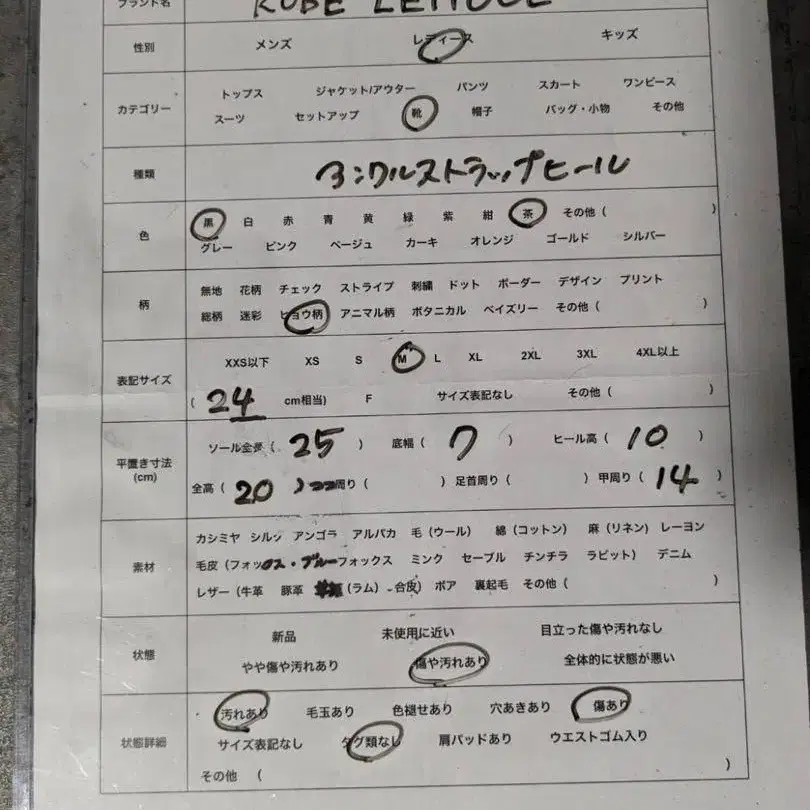 ブランド名 KOBE LETTUCE
性別 メンズ レディース キッズ
トップス ジャケット/アウター パンツ スカート ワンピース
カテゴリー
スーツ セットアップ 靴 帽子 バッグ・小物 その他
種類 アンクルストラップヒール
黒 白 赤 青 黄 緑 紫 紺 茶 その他( )
色
グレー ピンク ベージュ カーキ オレンジ ゴールド シルバー
無地 花柄 チェック ストライプ 刺繍 ドット ボーダー デザイン プリント
柄
総柄 迷彩 ヒョウ柄 アニマル柄 ボタニカル ペイズリー その他( )
XXS以下 XS S M L XL 2XL 3XL 4XL以上
表記サイズ
( 24 cm相当) F サイズ表記なし その他( )
ソール全長( 25 ) 底幅( 7 ) ヒール高( 10 )
平置き寸法
(cm)
全高( 20 ) 周り( ) 足首周り( ) 甲周り( 14 )
カシミヤ シルク アンゴラ アルパカ 毛(ウール) 綿(コットン) 麻(リネン) レーヨン
毛皮(フォックス・ブルーフォックス ミンク セーブル チンチラ ラビット) デニム
素材
レザー(牛革 豚革 (ラム) 合皮) ボア 裏起毛 その他( )
新品 未使用に近い 目立った傷や汚れなし
状態
やや傷や汚れあり 傷や汚れあり 全体的に状態が悪い
汚れあり 毛玉あり 色褪せあり 穴あきあり 傷あり
状態詳細
サイズ表記なし タグ類なし 肩パッドあり ウエストゴム入り
その他 ( )